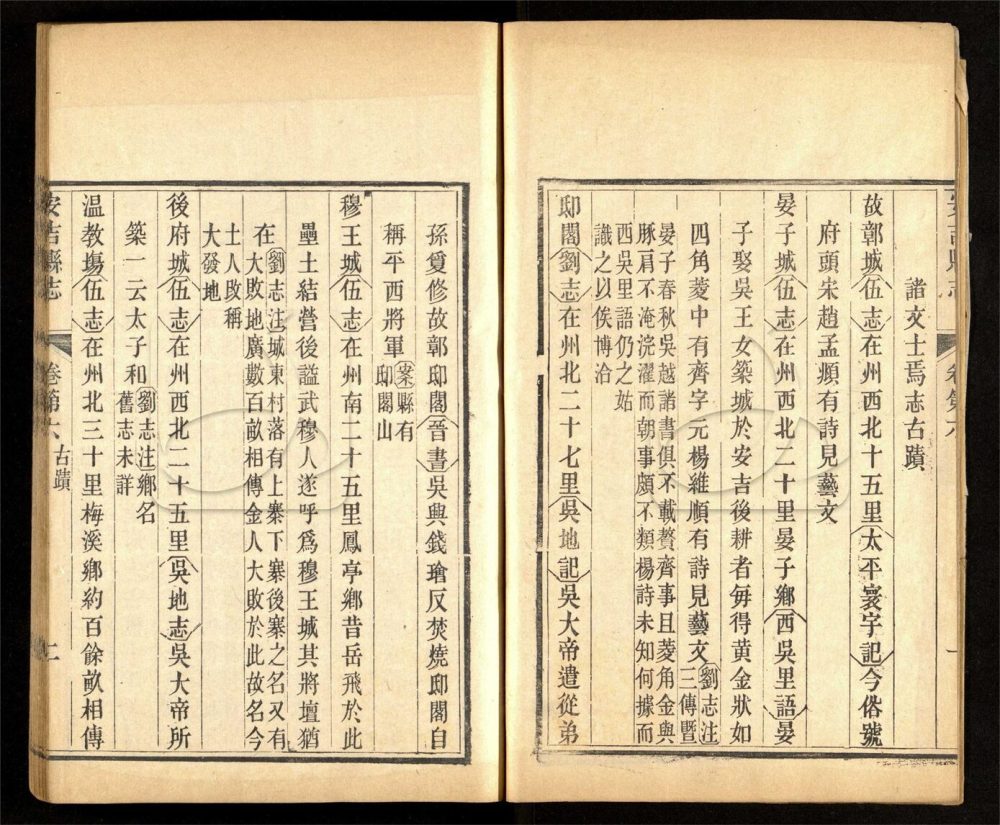 諸文士焉志古蹟
故鄣城伍志在州西北十五里太平寰宇記今俗號
府頭宋趙孟頫有詩見藝文
晏子城伍志在州西北二十里晏子鄉西吳里語晏
子娶吳王女築城於安吉後耕者每得黃金狀如
四角菱中有齊字元楊維順有詩見藝文劉志注三傳曁
晏子春秋吳越諸書俱不載贅齊事且菱角金與
豚肩不淹浣濯而朝事頗不類楊詩未知何據而
西吳里語仍之姑
識之以俟博洽
邸閣劉志在州北二十七里吳地記吳大帝遣從弟
孫夐修故鄣邸閣晉書吳興錢璯反焚燒邸閣自
稱平西將軍案縣有邸閣山
穆王城伍志在州南二十五里鳳亭鄉昔岳飛於此
壘土結營後謚武穆人遂呼爲穆王城其將壇猶
在劉志注城東村落有上寨下寨後寨之名又有
大敗地廣數百畝相傳金人大敗於此故名今
土人敗稱
大發地
後府城伍志在州西北二十五里吳地志吳大帝所
築一云太子和劉志注鄉名舊志未詳
溫教塲伍志在州北三十里梅溪鄉約百餘畝相傳
安吉縣志
卷第六
古蹟
二